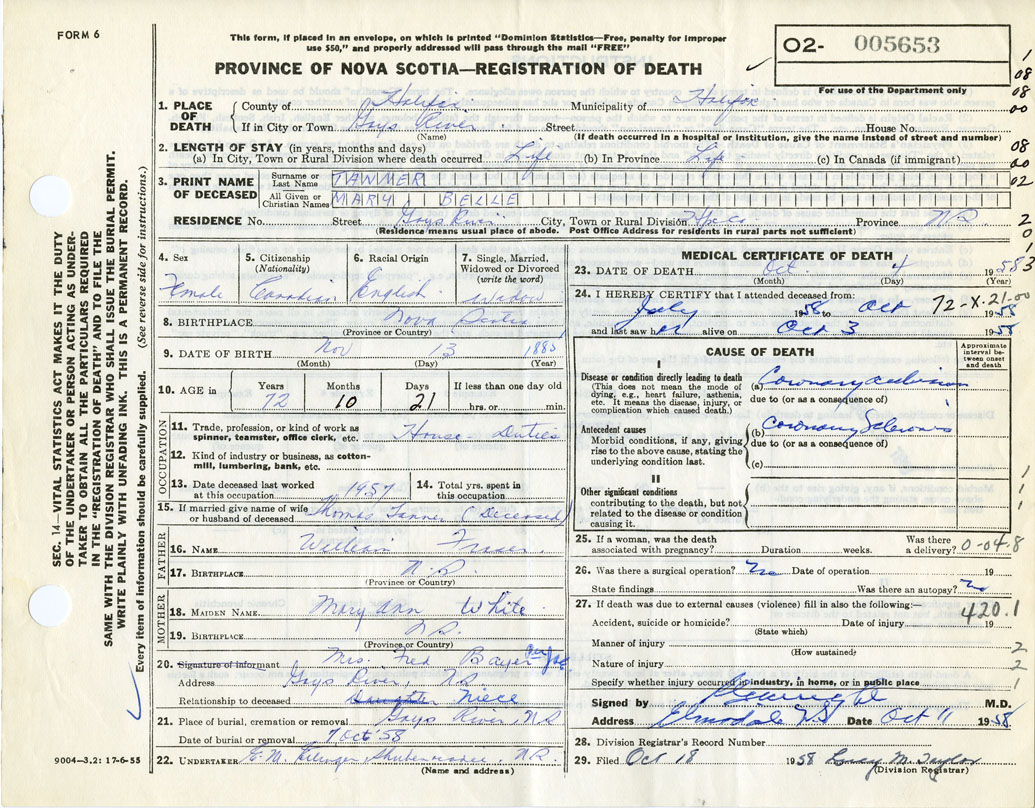 FORM 6
This form, if placed in an envelope, on which is printed "Dominion Statistics—Free, penalty for improper
use $50," and properly addressed will pass through the mail "FREE"
PROVINCE OF NOVA SCOTIA—REGISTRATION OF DEATH
O2- 005653
For use of the Department only
1. PLACE OF DEATH County of Halifax Municipality of Halifax
If in City or Town Gays River Street House No.
(Name) (If death occurred in a hospital or institution, give the name instead of street and number)
2. LENGTH OF STAY (in years, months and days)
(a) In City, Town or Rural Division where death occurred Life (b) In Province Life (c) In Canada (if immigrant)
3. PRINT NAME OF DECEASED Surname or Last Name TANNER
All Given or Christian Names MARY BELLE
RESIDENCE No. Street Gays River City, Town or Rural Division Province N.S.
(Residence means usual place of abode. Post Office Address for residents in rural parts not sufficient)
4. Sex Female
5. Citizenship (Nationality) Canadian
6. Racial Origin English
7. Single, Married, Widowed or Divorced (write the word) widow
8. BIRTHPLACE Nova Scotia
(Province or Country)
9. DATE OF BIRTH Nov 13 1885
(Month) (Day) (Year)
10. AGE in Years 72 Months 10 Days 21 If less than one day old hrs. or min.
OCCUPATION
11. Trade, profession, or kind of work as spinner, teamster, office clerk, etc. House-Duties
12. Kind of industry or business, as cotton-mill, lumbering, bank, etc.
13. Date deceased last worked at this occupation 1957
14. Total yrs. spent in this occupation
15. If married give name of wife or husband of deceased Thomas Tanner (Deceased)
FATHER
16. NAME William Fraser
17. BIRTHPLACE N.S.
(Province or Country)
MOTHER
18. MAIDEN NAME Mary Ann White
19. BIRTHPLACE N.S.
(Province or Country)
20. Signature of informant Mrs. Fred Bayer
Address Gays River, N.S.
Relationship to deceased Daughter Niece
21. Place of burial, cremation or removal Gays River, N.S.
Date of burial or removal 7 Oct 58
22. UNDERTAKER Shubenacadie, N.S.
(Name and address)
MEDICAL CERTIFICATE OF DEATH
23. DATE OF DEATH Oct 4 1958
(Month) (Day) (Year)
24. I HEREBY CERTIFY that I attended deceased from:
July 1958 to Oct 1958
72-X-21-00
and last saw her alive on Oct 3 1958
CAUSE OF DEATH
Approximate interval between onset and death
I
Disease or condition directly leading to death
(This does not mean the mode of dying, e.g., heart failure, asthenia, etc. It means the disease, injury, or complication which caused death.)
(a) Coronary occlusion
due to (or as a consequence of)
Antecedent causes
Morbid conditions, if any, giving rise to the above cause, stating the underlying condition last.
(b) Coronary Sclerosis
due to (or as a consequence of)
(c)
II
Other significant conditions
contributing to the death, but not related to the disease or condition causing it.
25. If a woman, was the death associated with pregnancy? Duration weeks. Was there a delivery?
0-04-8
26. Was there a surgical operation? No Date of operation 19
State findings Was there an autopsy? No
27. If death was due to external causes (violence) fill in also the following:—
420.1
Accident, suicide or homicide? Date of injury 19
(State which)
Manner of injury
(How sustained)
Nature of injury
Specify whether injury occurred in industry, in home, or in public place
Signed by M.D.
Address Elmsdale N.S. Date Oct 11 1958
28. Division Registrar's Record Number
29. Filed Oct 18 1958 Lucy M. Taylor
(Division Registrar)
SEC. 14—VITAL STATISTICS ACT MAKES IT THE DUTY
OF THE UNDERTAKER OR PERSON ACTING AS UNDER-
TAKER TO OBTAIN ALL THE PARTICULARS REQUIRED
IN THE "REGISTRATION OF DEATH" AND TO FILE THE
SAME WITH THE DIVISION REGISTRAR WHO SHALL ISSUE THE BURIAL PERMIT.
WRITE PLAINLY WITH UNFADING INK. THIS IS A PERMANENT RECORD.
Every item of information should be carefully supplied. (See reverse side for instructions.)
9004-3.2: 17-6-55
1
08
08
00
08
00
02
2
0
1
3
1
1
1
2
2
1